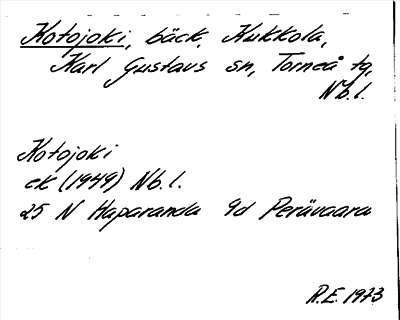 Kotojoki, bäck, Kukkola,
Karl Gustavs sn, Torneå tg,
Nb.l.
Kotojoki
ek (1949) Nb.l.
25 N Haparanda 9d Perävaara
R.E. 1973